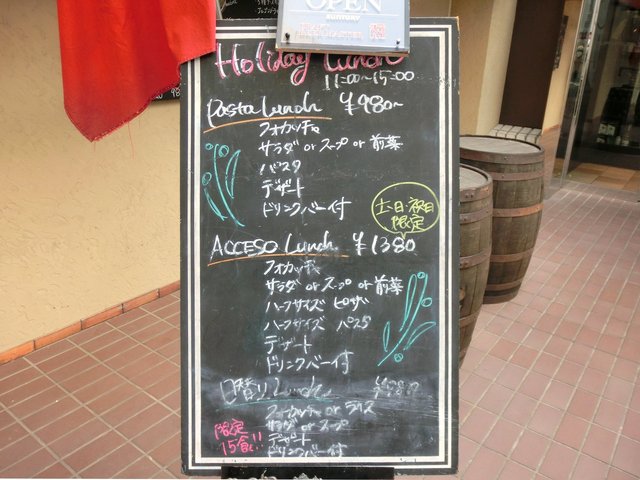 OPEN
SUNTORY
Holiday Lunch
11:00~15:00
Pasta Lunch ¥980~
フォカッチャ
サラダ or スープ or 前菜
パスタ
デザート
ドリンクバー付
土・日・祝日
限定
ACCESO Lunch ¥1380
フォカッチャ
サラダ or スープ or 前菜
ハーフサイズ ピザ
ハーフサイズ パスタ
デザート
ドリンクバー付
日替り Lunch
フォカッチャ or ライス
サラダ or スープ
デザート
ドリンクバー付
限定
15食!!